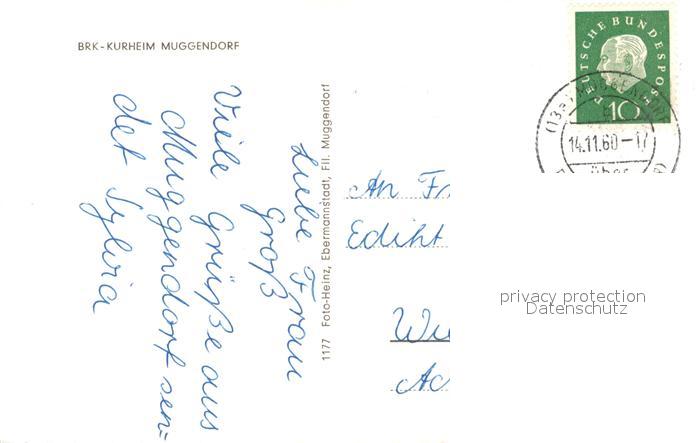 BRK-KURHEIM MUGGENDORF
Liebe Frau
Groß
Viele Grüße aus
Muggendorf sen=
det Sylvia
1177 Foto-Heinz, Ebermannstadt, Fil. Muggendorf
DEUTSCHE BUNDESPOST
10
(13a) MUGGENDORF
14.11.60-17
über
An Fr
Ediht
Wu
Ac
privacy protection
Datenschutz